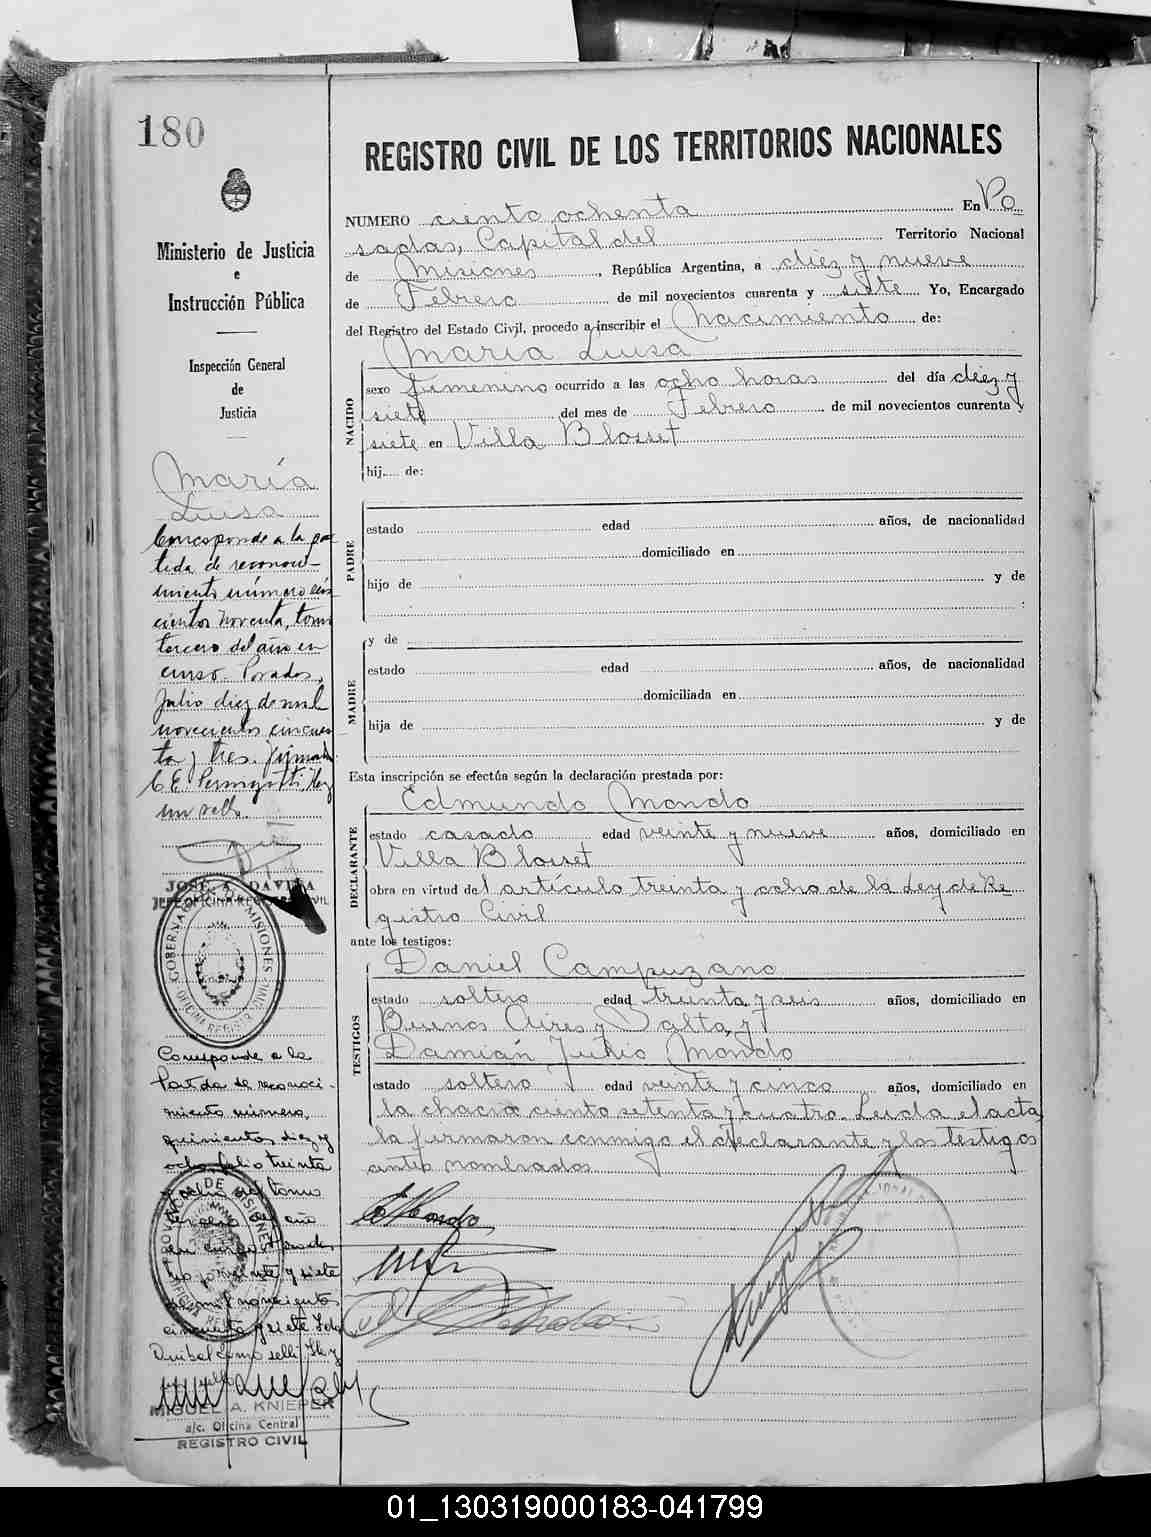 180
Ministerio de Justicia
e
Instrucción Pública
Inspección General
de
Justicia
María
Luisa
Corresponde a la par
tida de reconoci-
miento número
cientos noventa, tomo
tercero del año en
curso. Posadas,
Julio diez de mil
novecientos cincuen
ta y tres. Firmado
C. E. Hay
un sello.
JOSE A. DAVIÑA
JEFE OFICINA REGISTRO CIVIL
GOBERNACION DE MISIONES
OFICINA REGISTRO CIVIL
Corresponde a la
Partida de reconoci-
miento número
quinientos diez y
ocho, folio treinta
y ocho del tomo
tercero del año
en curso. Posadas,
veinte y siete
de mil novecientos
cincuenta y siete
PROVINCIA DE MISIONES
MIGUEL A. KNIEPER
a/c. Oficina Central
REGISTRO CIVIL
REGISTRO CIVIL DE LOS TERRITORIOS NACIONALES
NUMERO ciento ochenta En Po
sadas, Capital del Territorio Nacional
de Misiones, República Argentina, a diez y nueve
de Febrero de mil novecientos cuarenta y siete Yo, Encargado
del Registro del Estado Civil, procedo a inscribir el Nacimiento de:
María Luisa
NACIDO
sexo femenino ocurrido a las ocho horas del día diez y
siete del mes de Febrero de mil novecientos cuarenta y
siete en Villa Blosset
hij.... de:
PADRE
estado edad años, de nacionalidad
domiciliado en
hijo de y de
:
y de
MADRE
estado edad años, de nacionalidad
domiciliada en
hija de y de
Esta inscripción se efectúa según la declaración prestada por:
Edmundo Mondo
DECLARANTE
estado casado edad veinte y nueve años, domiciliado en
Villa Blosset
obra en virtud del artículo treinta y ocho de la Ley de Re
gistro Civil
ante los testigos:
Daniel Campuzano
TESTIGOS
estado soltero edad treinta y seis años, domiciliado en
Buenos Aires y Salta, y
Damián Julio Mondo
estado soltero edad veinte y cinco años, domiciliado en
la chacra ciento setenta y cuatro. Leída el acta,
la firmaron conmigo el declarante y los testigos
antes nombrados
E Mondo
01_130319000183-041799